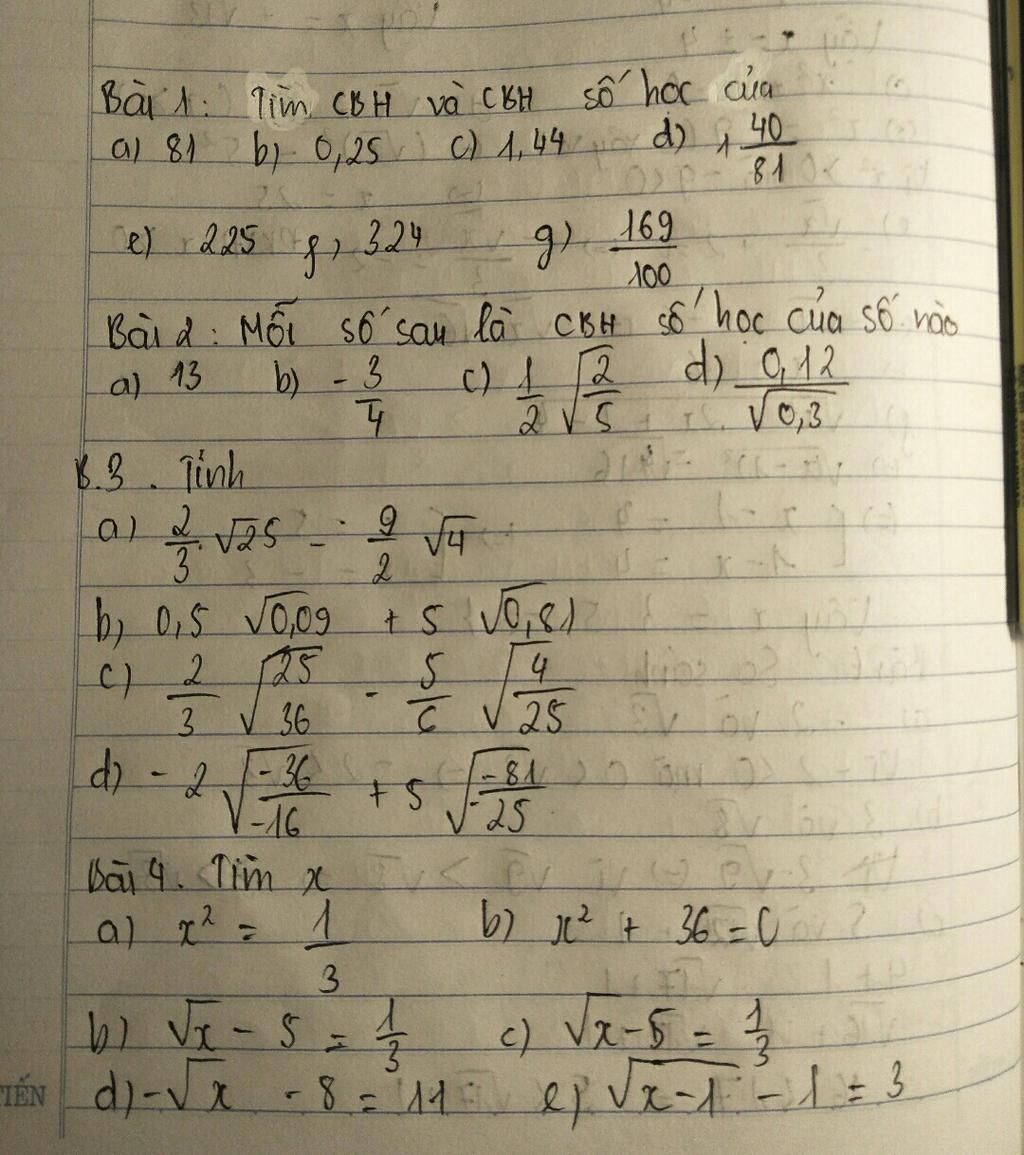 Bài 1: Tìm CBH và CBH số học của
a) 81 b) 0,25 c) 1,44 d) 1 40/81
e) 225 f) 324 g) 169/100
Bài 2: Mỗi số sau là CBH số học của số nào
a) 13 b) -3/4 c) 1/2 √(2/5) d) 0,12/√0,3
B.3. Tính
a) 2/3.√25 - 9/2 √4
b) 0,5 √0,09 + 5 √0,81
c) 2/3 √(25/36) - 5/6 √(4/25)
d) -2 √(-36/-16) + 5 √(-81/-25)
Bài 4. Tìm x
a) x² = 1/3 b) x² + 36 = 0
b) √x - 5 = 1/3 c) √x-5 = 1/3
d) -√x - 8 = 11 e) √(x-1) - 1 = 3
TIẾN